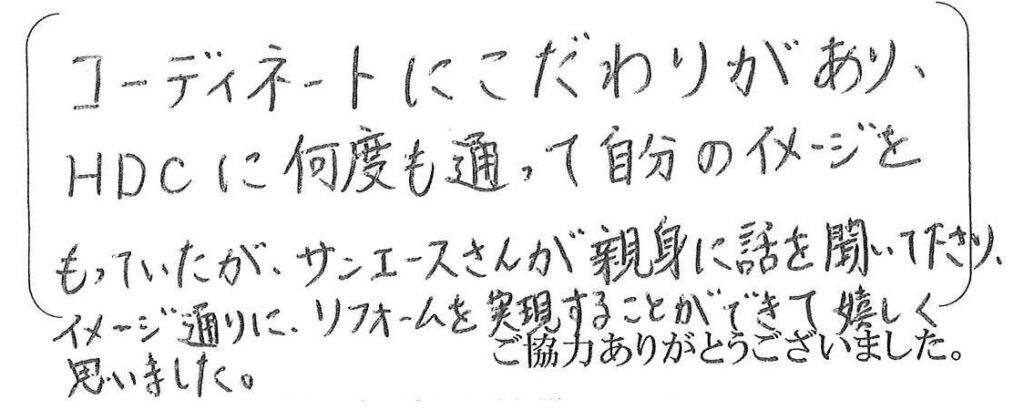 コーディネートにこだわりがあり、
HDCに何度も通って自分のイメージを
もっていたが、サンエースさんが親身に話を聞いて下さり、
イメージ通りに、リフォームを実現することができて嬉しく
思いました。
ご協力ありがとうございました。